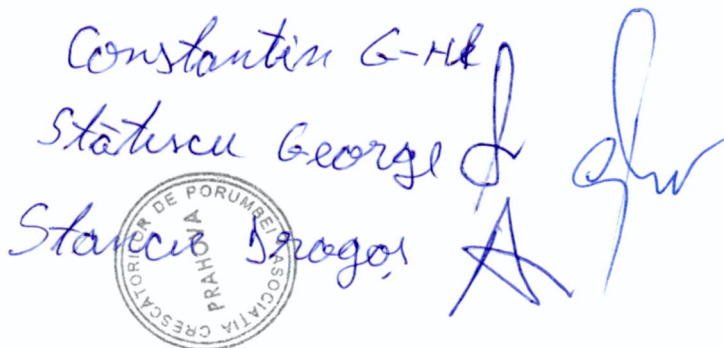 Constantin G-HE
Stătescu George
Stancu Dragoș
ASOCIAȚIA CRESCĂTORILOR DE PORUMBEI
PRAHOVA